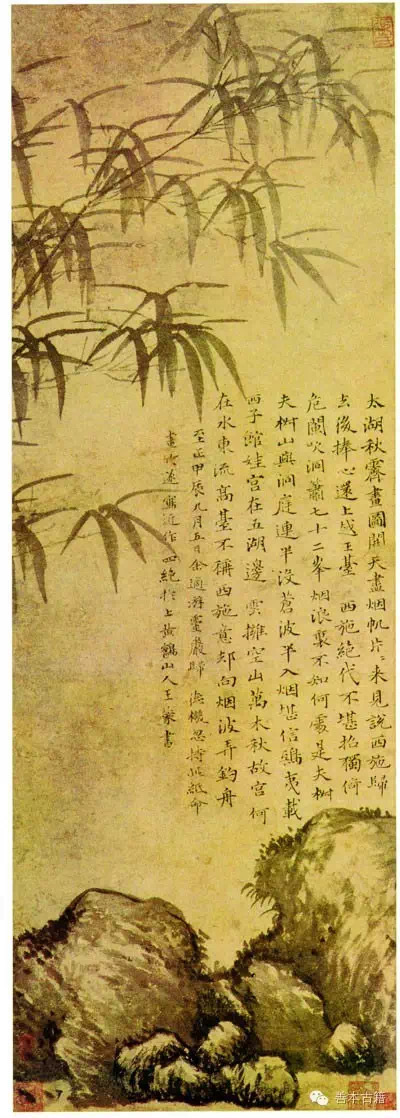 太湖秋霽畫圖開天盡烟帆片〻來見說西施歸
去後捧心還上越王臺　西施絕代不堪招獨倚
危闌吹洞蕭七十二峯烟浪裏不知何處是夫椒
夫椒山與洞庭連半沒蒼波半入烟堪信鴟夷載
西子館娃宮在五湖邊　雲擁空山萬木秋故宮何
在水東流高臺不稱西施意却向烟波弄釣舟
至正甲辰九月五日余適游靈巖歸　德機忽持此紙命
畫竹遂寫近作四絕於上黃鶴山人王蒙書
善本古籍